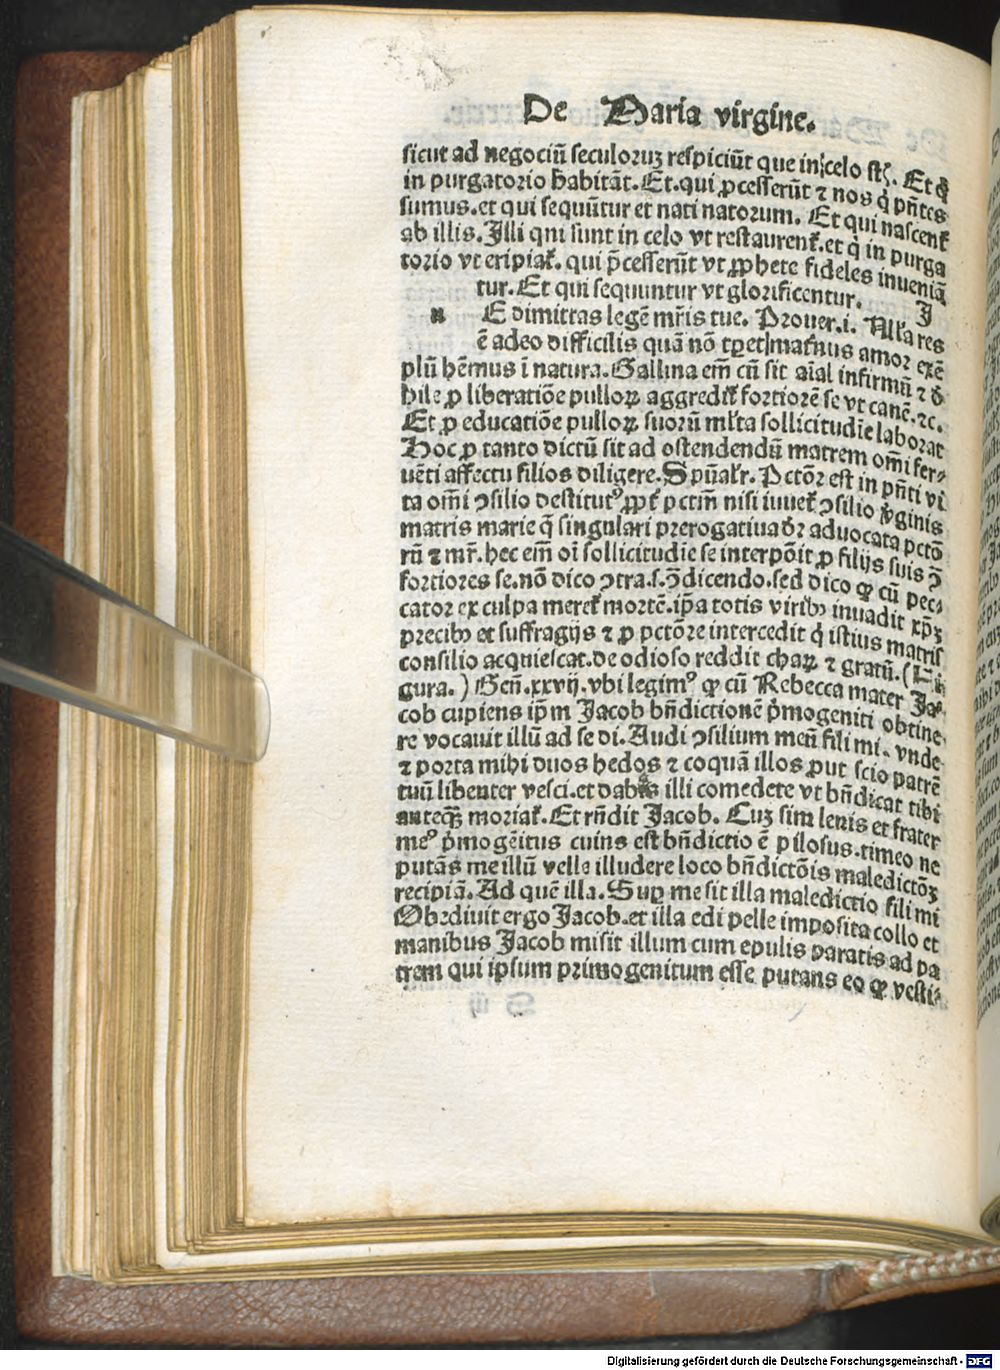 De Maria virgine.
sicut ad negociū seculoruꝫ respiciūt que in celo st̄. Et q̄
in purgatorio habitāt. Et.qui p̄cesserūt ⁊ nos q̇ pn̄tes
sumus.et qui sequūtur et nati natorum. Et qui nascent᷑
ab illis. Illi qni sunt in celo vt restaurent᷑.et q̇ in purga
torio vt eripiat᷑. qui p̄cesserūt vt ꝓphete fideles inueniā
tur. Et qui sequuntur vt glorificentur. I
n E dimittas legē mr̄is tue. Prouer.i. Nulla res
ē adeo difficilis quā nō tꝑet maternus amor exē
plū hēmus ī natura. Gallina em̄ cū sit aīal infirmū ⁊ d
bile ꝓ liberatiōe pulloꝝ aggredit᷑ fortiorē se vt canē.⁊c.
Et ꝓ educatiōe pulloꝝ suorū ml̄ta sollicitudīe laborat
Hoc ꝓ tanto dictū sit ad ostendendū matrem om̄i fer⸗
uēti affectu filios diligere. Spūalr̄. Pctōr est in pn̄ti vi
ta om̄i ↄsilio destitutꝰ ꝓpt᷑ pctm̄ nisi iuuet᷑ ↄsilio v̇ginis
matris marie q̄ singulari prerogatiua dr̄ aduocata pctō
rū ⁊ mr̄. hec em̄ oī sollicitudīe se interpōit ꝓ filijs suis ↄ̄
fortiores se.nō dico ↄtra.s.ↄ̄dicendo.sed dico ꝙ cū pec⸗
cator ex culpa meret᷑ mortē.ip̄a totis viribꝫ inuadit xp̄ꝫ
precibꝫ et suffragijs ⁊ ꝓ pctōre intercedit q̇ istius matris
consilio acquiescat.de odioso reddit chaꝝ ⁊ gratū. (Fi
gura.) Gen̄.xxvij.vbi legimꝰ ꝙ cū Rebecca mater Ja⸗
cob cupiens ip̄m Jacob bn̄dictionē ṗmogeniti obtine⸗
re vocauit illū ad se di. Audi ↄsilium meū fili mi. vnde
⁊ porta mihi duos hedos ⁊ coquā illos ꝓut scio patrē
tuū libenter vesci.et dabis illi comedete vt bn̄dicat tibi
anteqꝫ moriat᷑. Et rn̄dit Jacob. Cuꝫ sim lenis et frater
meꝰ ṗmogēitus cuius est bn̄dictio ē pilosus.timeo ne
putās me illū velle illudere loco bn̄dictōis maledictōꝫ
recipiā. Ad quē illa. Suꝑ me sit illa maledictio fili mi
Obediuit ergo Jacob.et illa edi pelle imposita collo et
manibus Jacob misit illum cum epulis paratis ad pa
trem qui ipsum primogenitum esse putans eo ꝙ vesti⸗
Digitalisierung gefördert durch die Deutsche Forschungsgemeinschaft - DFG